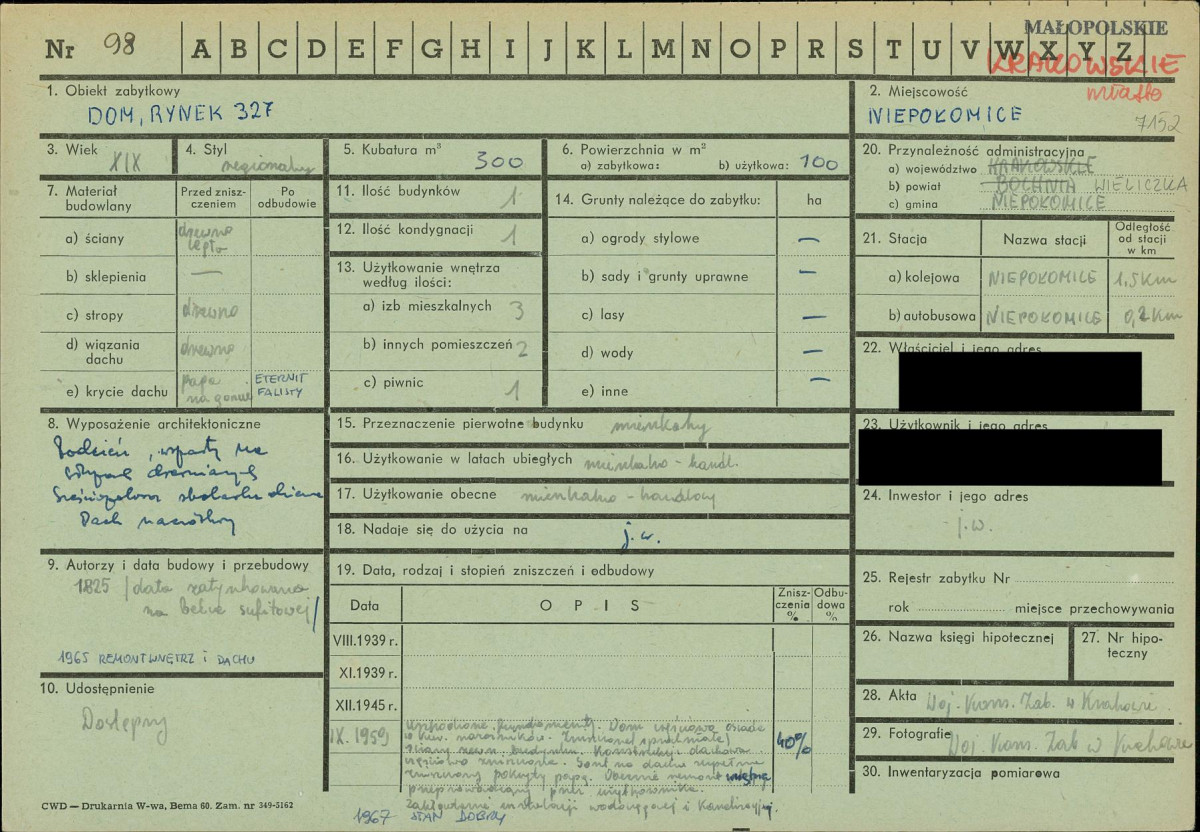 Nr 98 A B C D E F G H I J K L M N O P R S T U V W X Y Z
MAŁOPOLSKIE
KRAKOWSKIE
miasto
1. Obiekt zabytkowy
DOM, RYNEK 327
2. Miejscowość
NIEPOŁOMICE
7152
3. Wiek
XIX
4. Styl
regionalny
5. Kubatura m³
300
6. Powierzchnia w m²
a) zabytkowa: b) użytkowa: 100
7. Materiał budowlany
Przed zniszczeniem
Po odbudowie
a) ściany drewno
b) sklepienia —
c) stropy drewno
d) wiązania dachu drewno
e) krycie dachu papa na goncie ETERNIT FALISTY
8. Wyposażenie architektoniczne
Podcień, wsparty na
słupach drewnianych
Dach naczółkowy
9. Autorzy i data budowy i przebudowy
1825 /data zatynkowana
na belce sufitowej/
1965 REMONT WNĘTRZ I DACHU
10. Udostępnienie
Dostępny
11. Ilość budynków 1
12. Ilość kondygnacji 1
13. Użytkowanie wnętrza
według ilości:
a) izb mieszkalnych 3
b) innych pomieszczeń 2
c) piwnic 1
14. Grunty należące do zabytku: ha
a) ogrody stylowe —
b) sady i grunty uprawne —
c) lasy —
d) wody —
e) inne —
15. Przeznaczenie pierwotne budynku mieszkalny
16. Użytkowanie w latach ubiegłych mieszkalno - handl.
17. Użytkowanie obecne mieszkalno - handlowy
18. Nadaje się do użycia na j.w.
19. Data, rodzaj i stopień zniszczeń i odbudowy
Data OPIS Zniszczenia % Odbudowa %
VIII.1939 r.
XI.1939 r.
XII.1945 r.
IX. 1959 Uszkodzone fundamenty. Dom częściowo osiadł
ściany zewn. budynku. Konstrukcja dachowa
częściowo zniszczona. Gont na dachu zupełnie
zniszczony pokryty papą. Obecnie remont wnętrza
przeprowadzany przez użytkownika.
instalacji wodociągowej i kanalizacyj.
40%
1967 STAN DOBRY
20. Przynależność administracyjna
a) województwo KRAKOWSKIE
b) powiat BOCHNIA WIELICZKA
c) gmina NIEPOŁOMICE
21. Stacja Nazwa stacji Odległość od stacji w km
a) kolejowa NIEPOŁOMICE 1.5 Km
b) autobusowa NIEPOŁOMICE 0,2 Km
22. Właściciel i jego adres
23. Użytkownik i jego adres
24. Inwestor i jego adres
j.w.
25. Rejestr zabytku Nr
rok miejsce przechowywania
26. Nazwa księgi hipotecznej
27. Nr hipoteczny
28. Akta Woj. Kons. Zab. w Krakowie
29. Fotografie Woj. Kons. Zab w Krakowie
30. Inwentaryzacja pomiarowa
CWD — Drukarnia W-wa, Bema 60. Zam. nr 349-5162